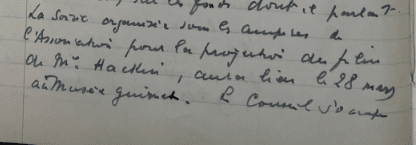 sur les fonds dont il parlait.
La soirée organisée sous les auspices de
l'Association pour la projection du film
de Mr. Hackin, aura lieu le 28 mars
au Musée Guimet. Le Conseil s'occupe